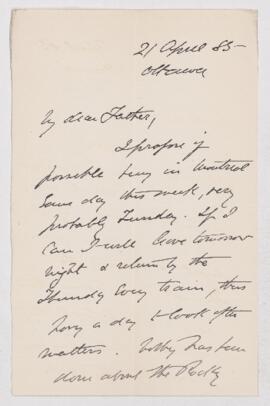 21 April 85
Ottawa
My dear Father,
I propose if
possible being in Montreal
some day this week, very
probably Tuesday. If I
can I will leave tomorrow
night & return by the
Thursday Evg train, thus
having a day to look after
matters. has been
done about the Rocky